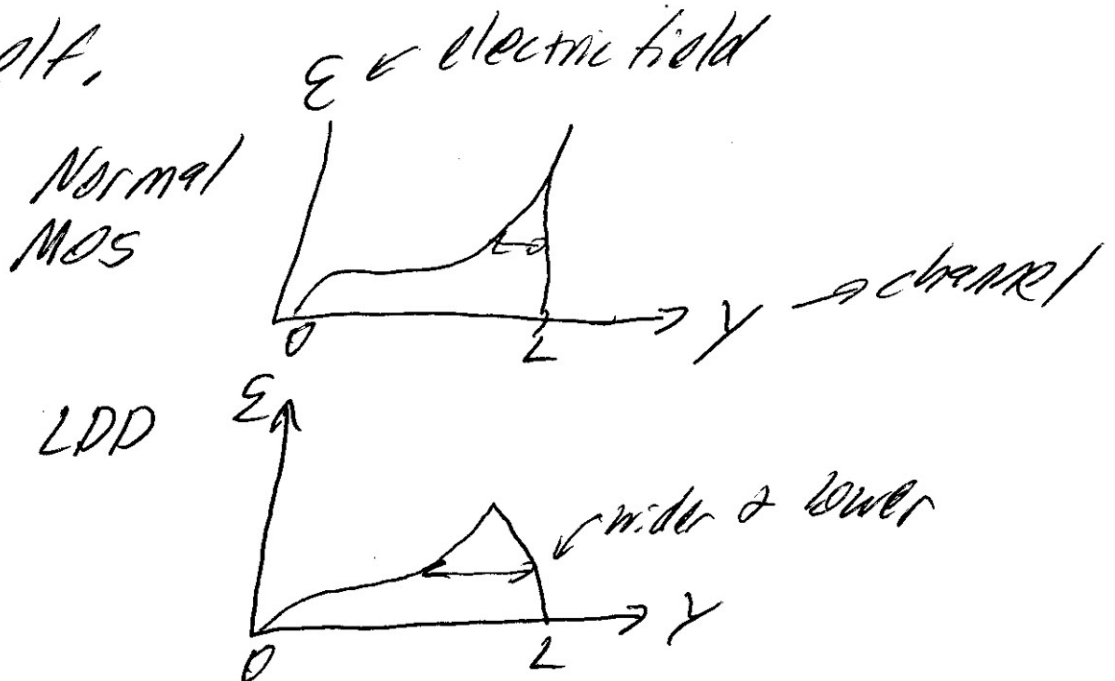 elf,
ε ← electric field
Normal
MOS
0 L y → channel
LDD ε
wider & lower
0 L y